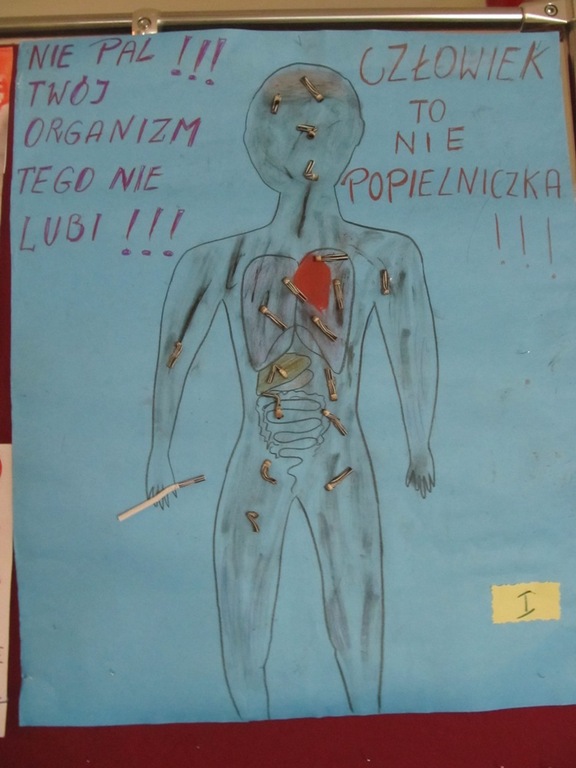 NIE PAL !!!
TWÓJ
ORGANIZM
TEGO NIE
LUBI !!!
CZŁOWIEK
TO
NIE
POPIELNICZKA
!!!
I